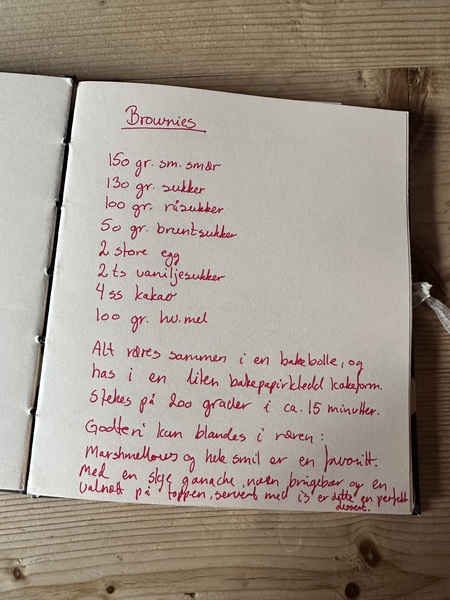 Brownies
150 gr. sm. smør
130 gr. sukker
100 gr. råsukker
50 gr. bruntsukker
2 store egg
2 ts vaniljesukker
4 ss kakao
100 gr. hv.mel
Alt røres sammen i en bakebolle, og
has i en liten bakepapirkledd kakeform.
Stekes på 200 grader i ca. 15 minutter.
Godteri kan blandes i røren:
Marshmellows og hele smil er en favoritt.
Med en skje ganache, noen bringebær og en
valnøtt på toppen, servert med is er dette en perfekt
dessert.